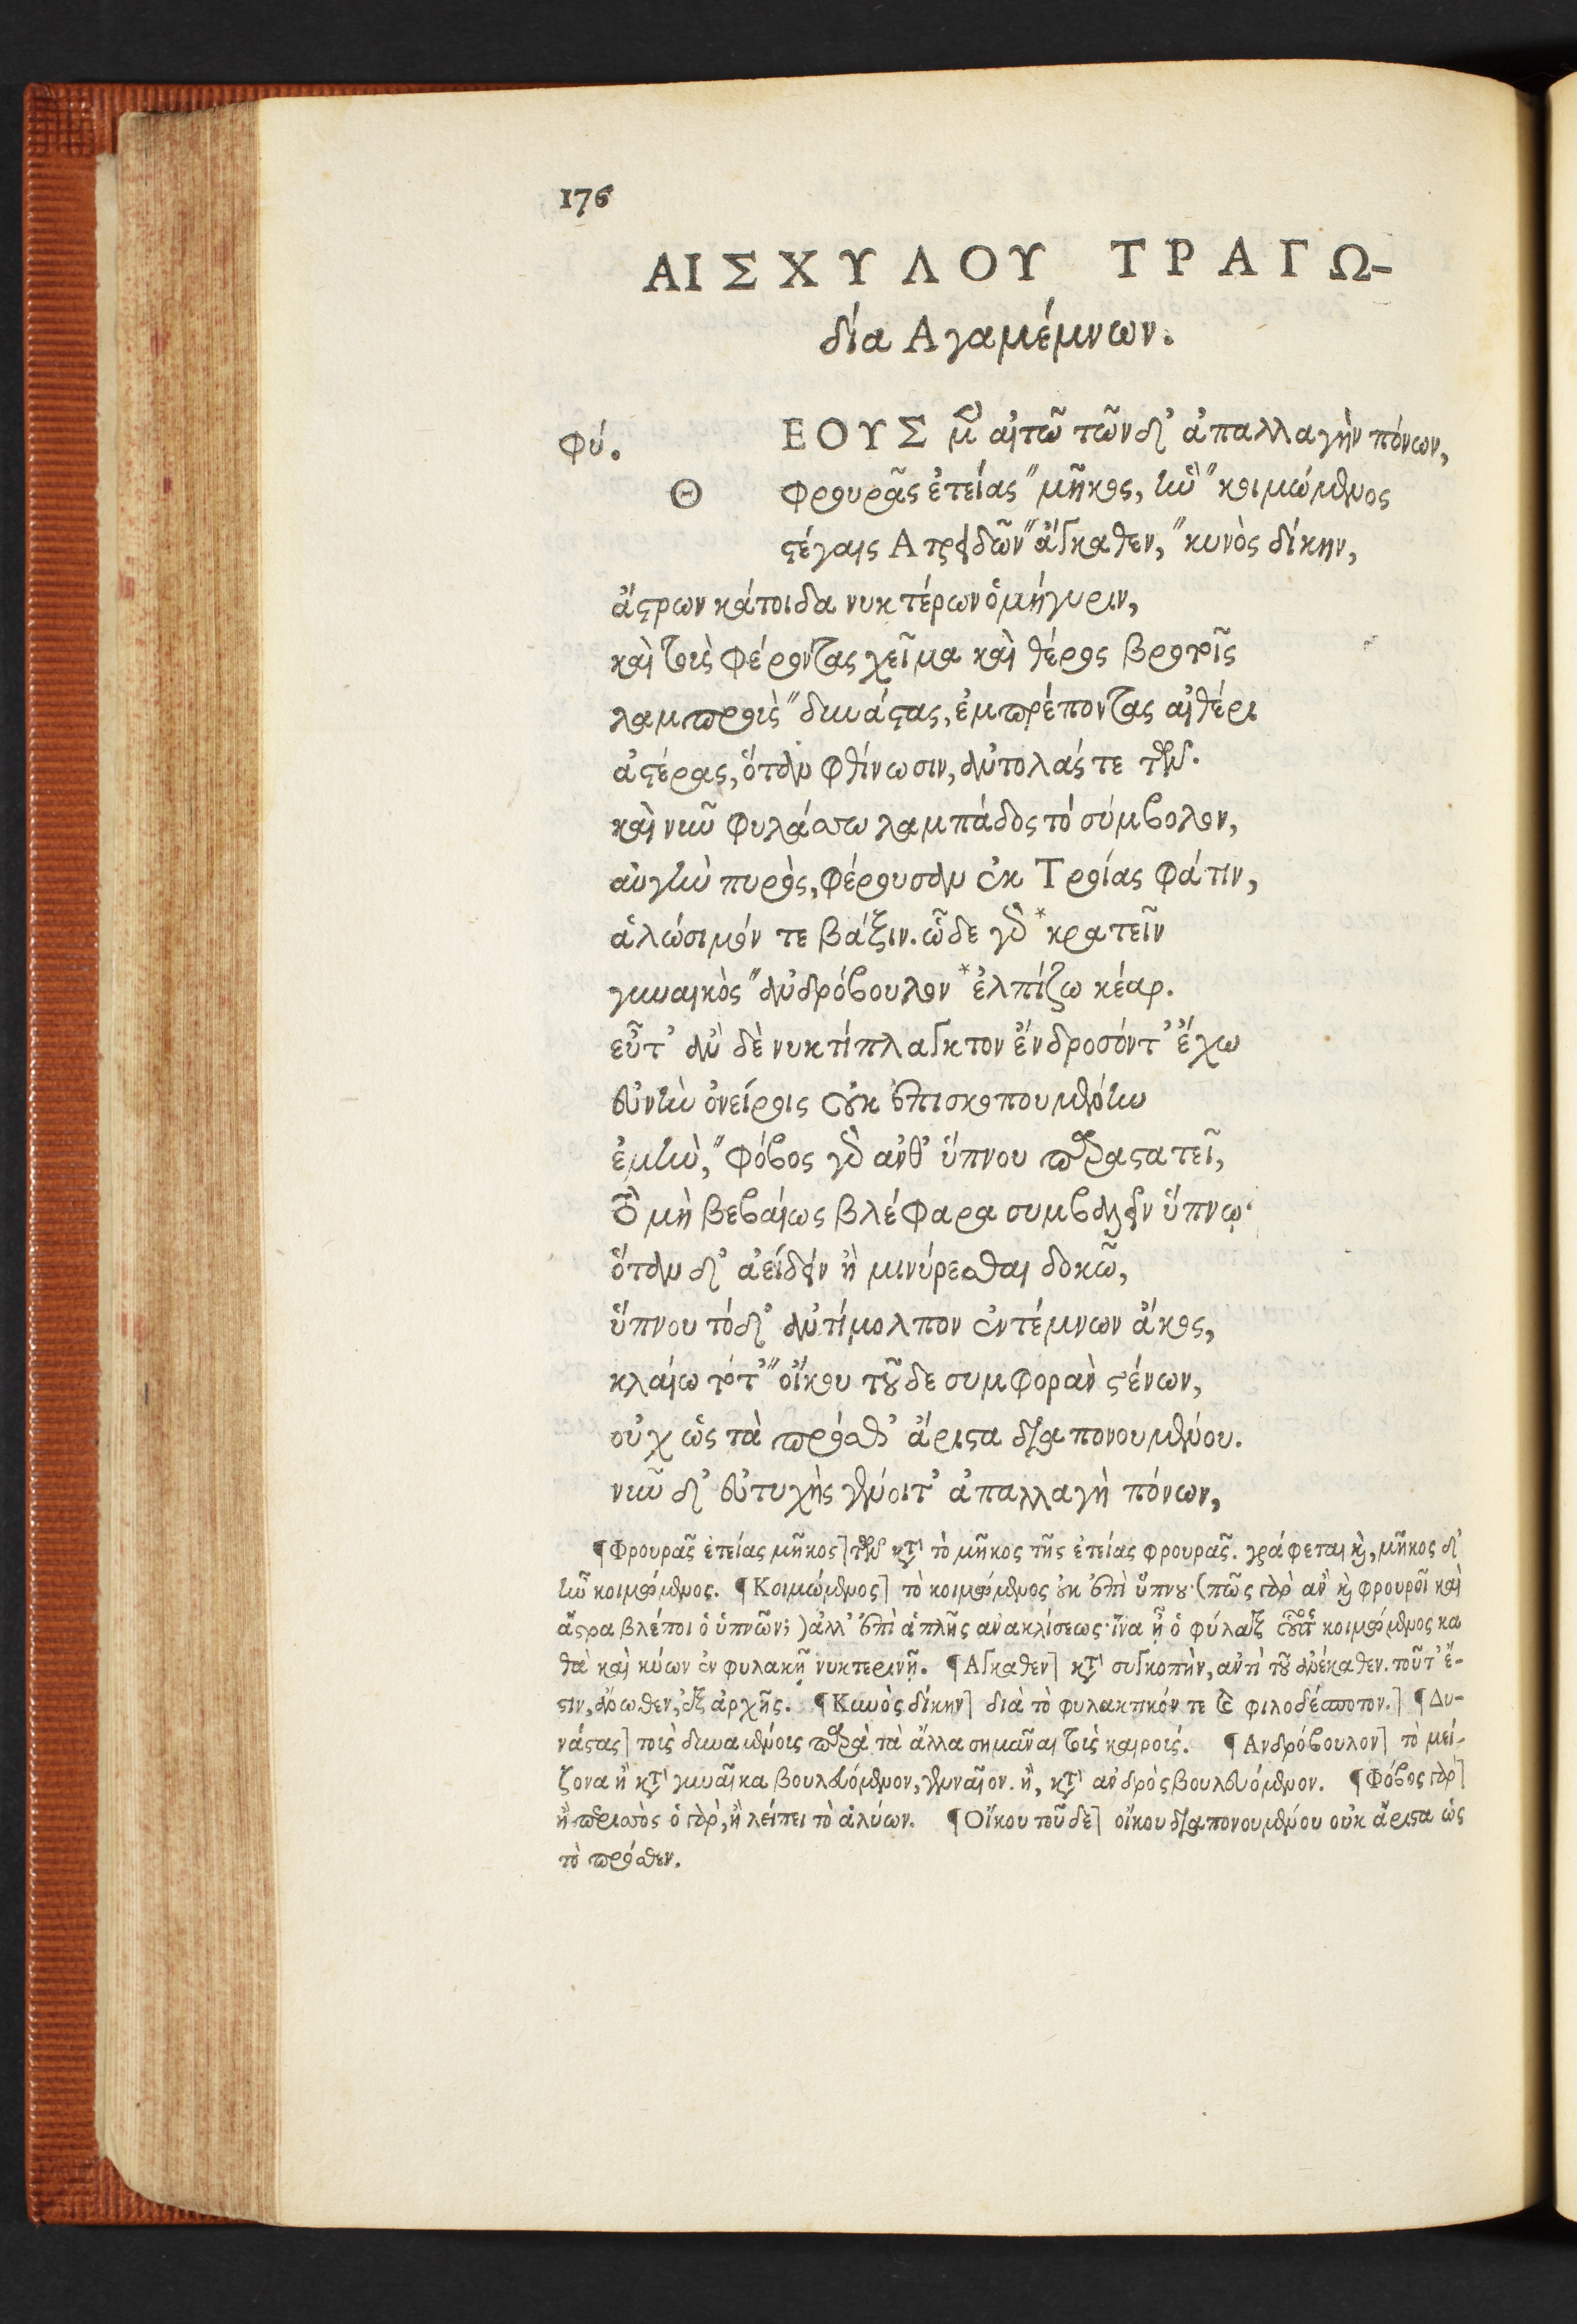 176
ΑΙΣΧΥΛΟΥ ΤΡΑΓΩ-
δία Αγαμέμνων.
Φύ. ΘΕΟΥΣ μὲν αἰτῶ τῶνδ᾽ ἀπαλλαγὴν πόνων,
φρουρᾶς ἐτείας "μῆκος, ἣν "κοιμώμενος
στέγαις Ατρειδῶν "ἄγκαθεν, "κυνὸς δίκην,
ἄστρων κάτοιδα νυκτέρων ὁμήγυριν,
καὶ τοὺς φέροντας χεῖμα καὶ θέρος βροτοῖς
λαμπροὺς "δυνάστας, ἐμπρέποντας αἰθέρι
ἀστέρας, ὅταν φθίνωσιν, ἀντολάς τε τῶν.
καὶ νῦν φυλάσσω λαμπάδος τό σύμβολον,
αὐγὴν πυρὸς, φέρουσαν ἐκ Τροίας φάτιν,
ἁλώσιμόν τε βάξιν. ὧδε γὰρ *κρατεῖν
γυναικὸς "ἀνδρόβουλον *ἐλπίζω κέαρ.
εὖτ᾽ ἂν δὲ νυκτίπλαγκτον ἔνδροσόντ᾽ ἔχω
εὐνὴν ὀνείροις οὐκ ἐπισκοπουμένην
ἐμὴν, "φόβος γὰρ ἀνθ᾽ ὕπνου παραστατεῖ,
τὸ μὴ βεβαίως βλέφαρα συμβαλεῖν ὕπνῳ·
ὅταν δ᾽ ἀείδειν ἢ μινύρεσθαι δοκῶ,
ὕπνου τόδ᾽ ἀντίμολπον ἐντέμνων ἄκος,
κλαίω τότ᾽ "οἴκου τοῦδε συμφορὰν στένων,
οὐχ ὡς τὰ πρόσθ᾽ ἄριστα διαπονουμένου.
νῦν δ᾽ εὐτυχὴς γένοιτ᾽ ἀπαλλαγὴ πόνων,
¶Φρουρᾶς ἐτείας μῆκος] τὴν κατὰ τὸ μῆκος τῆς ἐτείας φρουρᾶς. γράφεται καὶ, μῆκος δ᾽
ἣν κοιμώμενος. ¶Κοιμώμενος] τὸ κοιμώμενος οὐκ ἐπὶ ὕπνου· (πῶς γὰρ ἂν καὶ φρουροῖ καὶ
ἄστρα βλέποι ὁ ὑπνῶν;) ἀλλ᾽ ἐπὶ ἁπλῆς ἀνακλίσεως· ἵνα ᾖ ὁ φύλαξ οὕτω κοιμώμενος κα
θὰ καὶ κύων ἐν φυλακῇ νυκτερινῇ. ¶Αγκαθεν] κατὰ συγκοπὴν, ἀντὶ τοῦ ἀνέκαθεν. τοῦτ᾽ ἔ-
στιν, ἄνωθεν, ἐξ ἀρχῆς. ¶Κυνὸς δίκην] διὰ τὸ φυλακτικόν τε καὶ φιλοδέσποτον.] ¶Δυ-
νάστας] τοὺς δυναμένους παρὰ τὰ ἄλλα σημᾶναι τοὺς καιρούς. ¶Ανδρόβουλον] τὸ μεί-
ζονα ἢ κατὰ γυναῖκα βουλευόμενον, γενναῖον. ἢ, κατὰ ἀνδρὸς βουλευόμενον. ¶Φόβος γὰρ]
ἢ περισσὸς ὁ γὰρ, ἢ λείπει τὸ ἀλύων. ¶Οἴκου τοῦδε] οἴκου διαπονουμένου οὐκ ἄριστα ὡς
τὸ πρόσθεν.